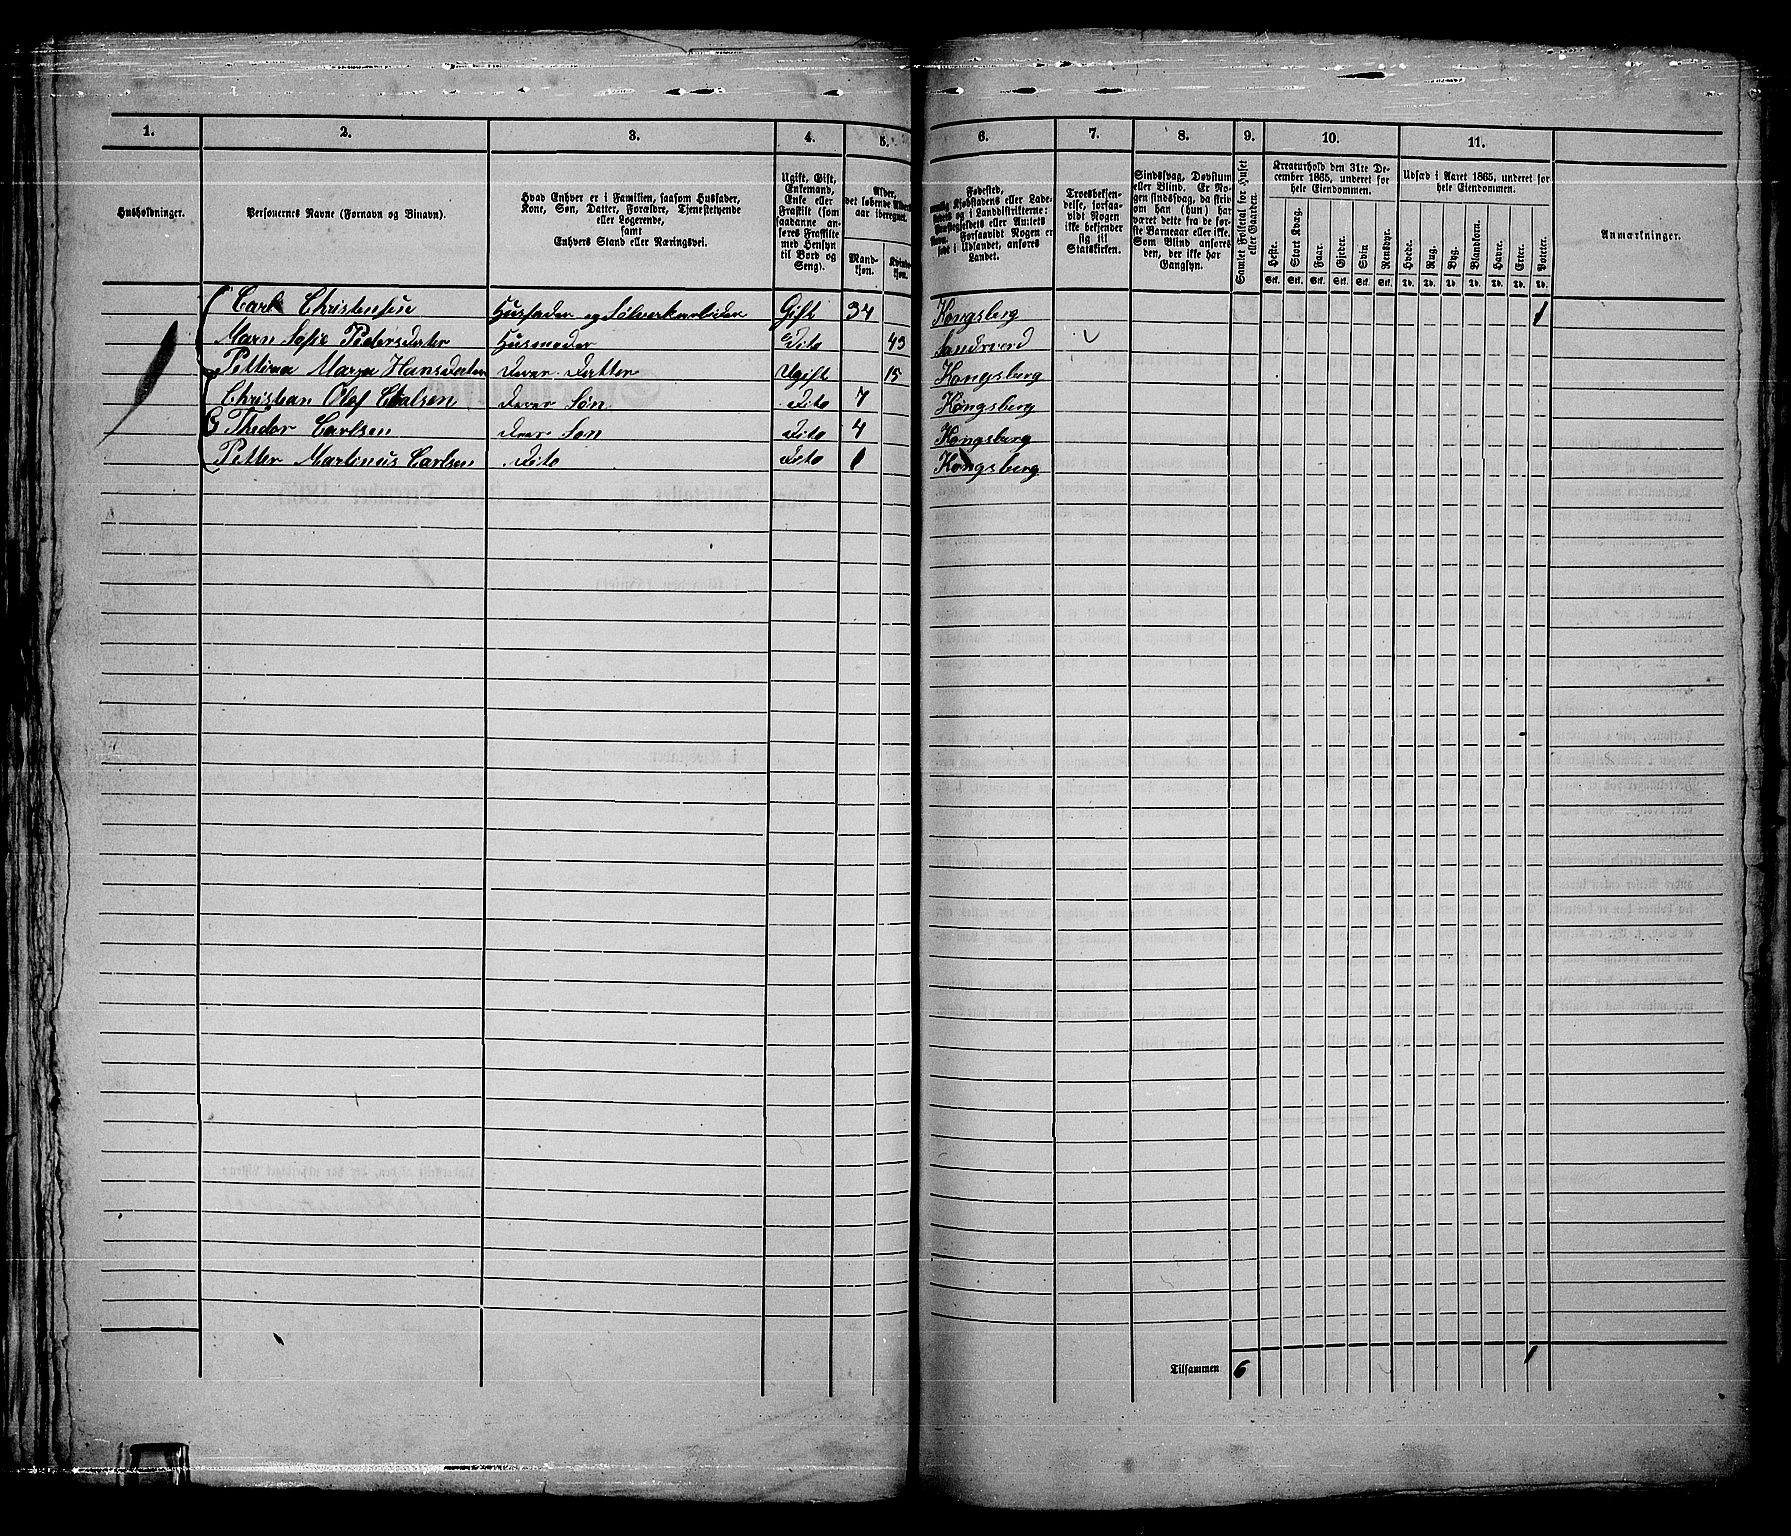 1. 2. 3. 4. 5. 6. 7. 8. 9. 10. 11.
Husholdninger.
Personernes Navne (Fornavn og Binavn).
Hvad Enhver er i Familien, saasom Husfader,
Kone, Søn, Datter, Forældre, Tjenestetyende
eller Logerende,
samt
Enhvers Stand eller Næringsvei.
Ugift, Gift,
Enkemand,
Enke eller
Fraskilt (som
saadanne an-
føres Fraskilte
med Hensyn
til Bord og
Seng).
Alder,
det løbende Alders-
aar iberegnet.
Mand-
kjøn.
Kvinde-
kjøn.
Fødested,
Kjøbstadens eller Lade-
og i Landdistrikterne:
Præstegjeldets eller Amtets
Navn. Forsaavidt Nogen er
født i Udlandet, anføres
Landet.
Troesbekjen-
delse, forsaa-
vidt Nogen
ikke bekjender
sig til
Statskirken.
Sindssvag, Døvstum
eller Blind. Er No-
gen sindssvag, da skriv
om han (hun) har
været dette fra de før-
ste Barneaar eller ikke.
Som Blind anføres
den, der ikke har
Gangsyn.
Samlet Folketal for Huset
eller Gaarden.
Kreaturhold den 31te De-
cember 1865, underet for
hele Eiendommen.
Heste. Stort Kvæg. Faar. Gjeder. Svin Rensdyr.
Stk. Stk. Stk. Stk. Stk. Stk.
Udsæd i Aaret 1865, underet for
hele Eiendommen.
Hvede. Rug. Byg. Blandkorn. Havre. Erter. Poteter.
Td. Td. Td. Td. Td. Td. Td.
Anmærkninger.
1 Carl Christensen Husfader og Sølverkarbider Gift 34 Kongsberg 1
Marn Sofie Pedersdater Husmoder Dito 43 Sandsverd
Pettrina Marya Hansdater deres Datter Ugift 15 Kongsberg
Christian Olof Calsen deres Søn Dito 7 Kongsberg
Thedor Carlsen deres Søn Dito 4 Kongsberg
Petter Martinus Carlsen Dito Dito 1 Kongsberg
Tilsammen 6 1